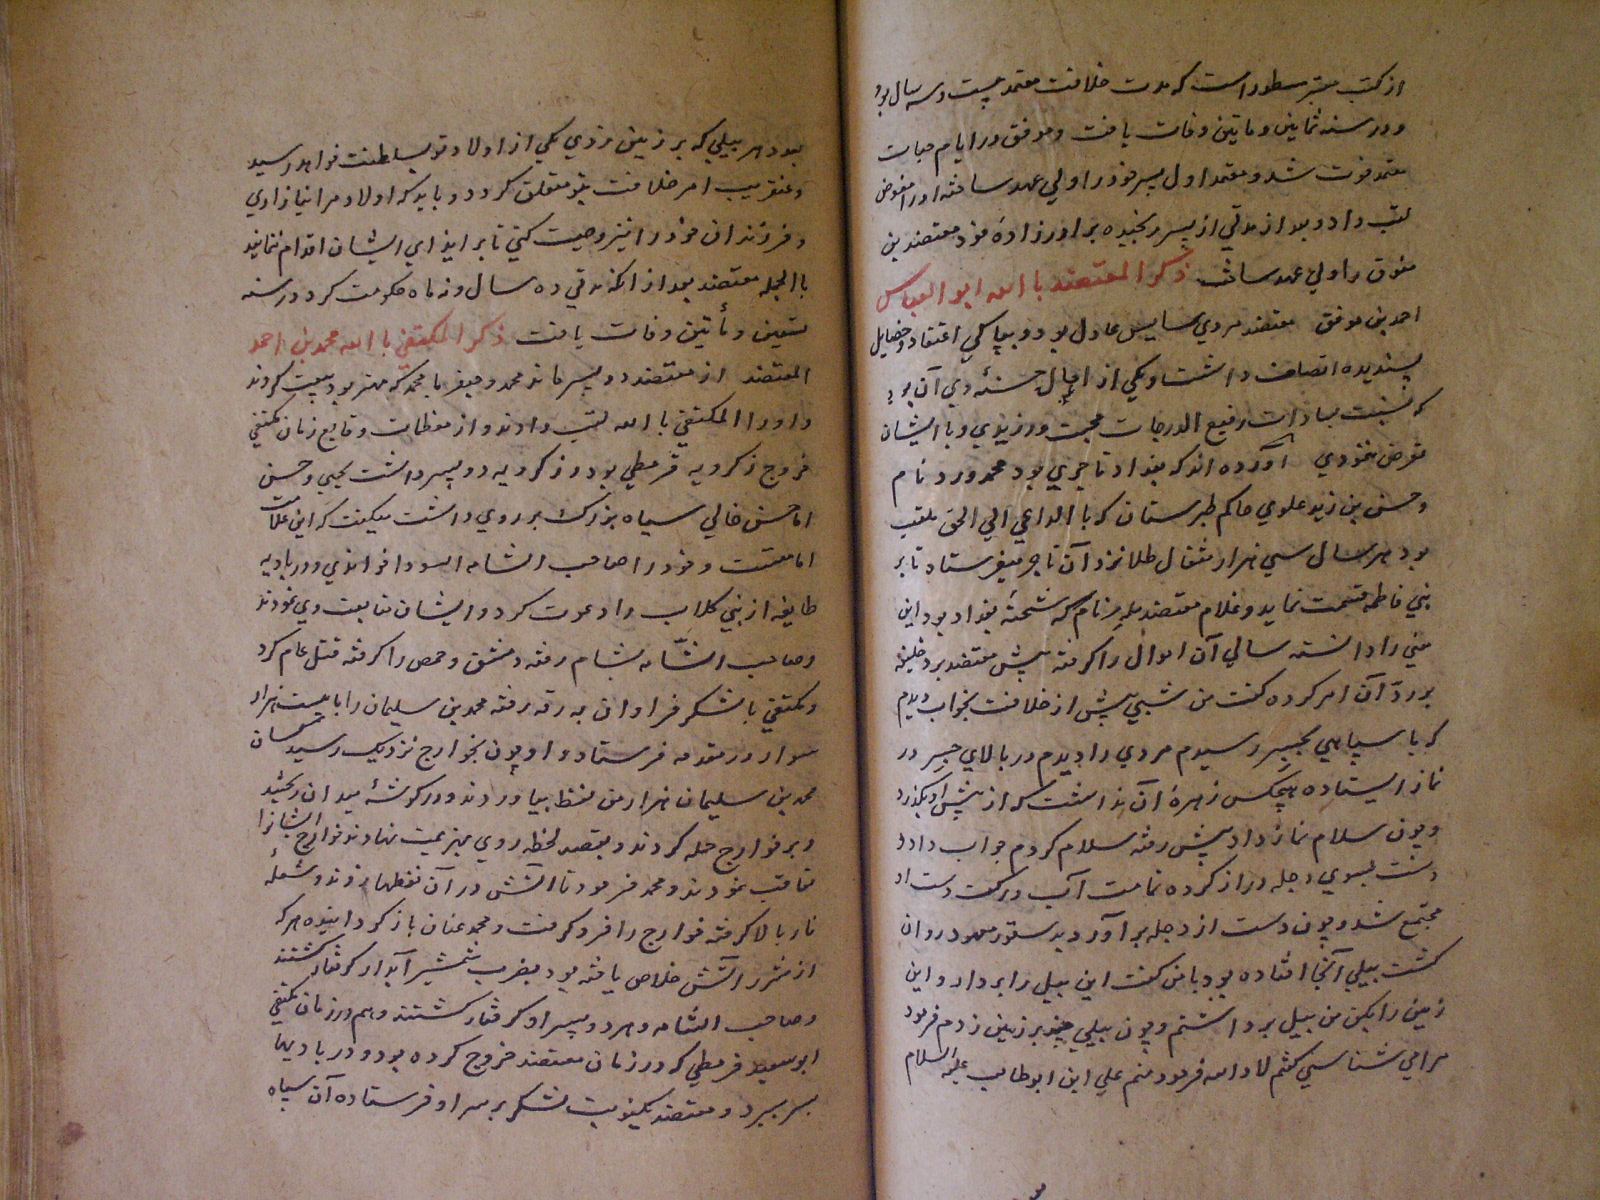 از کتب معتبر مسطور است که مدت خلافت معتمد بیست و سه سال بود
و در سنه ثمانین و ماتین وفات یافت و موفق در ایام حیات
معتمد فوت شد و معتمد اول پسر خود را ولی عهد ساخته او را مفوض
لقب داد و بعد از مدتی از پسر رنجیده برادرزادهٔ خود معتضد بن
موفق را ولی عهد ساخت ذکر المعتضد باالله ابو العباس
احمد بن موفق معتضد مردی سایس عادل بود و بپاکی اعتقاد و خصایل
پسندیده اتصاف داشت و یکی از افعال حسنهٔ وی آن بود
که بنسبت سادات رفیع الدرجات محبت ورزیدی و با ایشان
تعرض ننمودی آورده اند که بغداد تاجری بود محمد ورد نام
و حسن بن زید علوی حاکم طبرستان که باالداعی الی الحق ملقب
بود هر سال سی هزار مثقال طلا نزد آن تاجر میفرستاد تا بر
بنی فاطمه قسمت نماید و غلام معتضد بدر نام که شحنهٔ بغداد بود این
معنی را دانسته سالی آن اموال را گرفته پیش معتضد برد خلیفه
بر رد آن امر کرده گفت من شبی پیش از خلافت بخواب دیدم
که با سپاهی بجسر رسیدم مردی را دیدم در بالای جسر در
نماز ایستاده هیچکس زهرهٔ آن نداشت که از پیش او بگذرد
و چون سلام نماز داد پیش رفته سلام کردم جواب داد و
دست بسوی دجله دراز کرده تمامت آب در کف دست او
مجتمع شد و چون دست از دجله برآورد بدستور معهود روان
گشت بیلی آنجا افتاده بود با من گفت این بیل را بردار و این
زمین را بکن من بیل برداشتم و چون بیلی چند بر زمین زدم فرمود
مرا می شناسی گفتم لا والله فرمود منم علی ابن ابوطالب علیه السلام
بعدد هر بیلی که بر زمین زدی یکی از اولاد تو بسلطنت خواهد رسید
و عنقریب امر خلافت بتو متعلق گردد و باید که اولاد مرا نیازاری
و فرزندان خود را نیز وصیت کنی تا بر ایذای ایشان اقدام ننمایند
باالجمله معتضد بعد از آنکه مدتی ده سال و نه ماه حکومت کرد در سنه
تسعین و مأتین وفات یافت ذکر المکتفی باالله محمد بن احمد
المعتضد از معتضد دو پسر ماند محمد و جعفر با محمد که مهتر بود بیعت کردند
و او را المکتفی باالله لقب دادند و از معظمات وقایع زمان مکتفی
خروج زکرویه قرمطی بود و زکرویه دو پسر داشت یحیی و حسن
اما حسن خالی سیاه بزرگ بر روی داشت میگفت که این علامت
امامتست و خود را صاحب الشامه السودا خواندی و در بادیه
طایفه از بنی کلاب را دعوت کرد و ایشان متابعت وی نمودند
و صاحب الشامه بشام رفته دمشق و حمص را گرفته قتل عام کرد
و مکتفی با لشکر فراوان به رقه رفته محمد بن سلیمان را با بیست هزار
سوار در مقدمه فرستاد و او چون بخوارج نزدیک رسید کسان
محمد بن سلیمان هزار من نفط بیاوردند و در گوشهٔ میدان ریختند
و بر خوارج حمله کردند و بقصد لحظه روی بهزیمت نهادند خوارج ایشانرا
تعاقب نمودند و محمد فرمود تا آتش در آن نفطها زدند و شعلهٔ
نار بالا گرفته خوارج را فرو گرفت و محمد عنان باز گردانیده هر که
از شرر آتش خلاص یافته بود بضرب شمشیر آبدار گرفتار گشتند
و صاحب الشامه و هر دو پسر او گرفتار گشتند و هم در زمان مکتفی
ابوسعید قرمطی که در زمان معتضد خروج کرده بود و در بادیها
بسر میبرد و معتضد یکنوبت لشکر بر سر او فرستاده آن سپاه